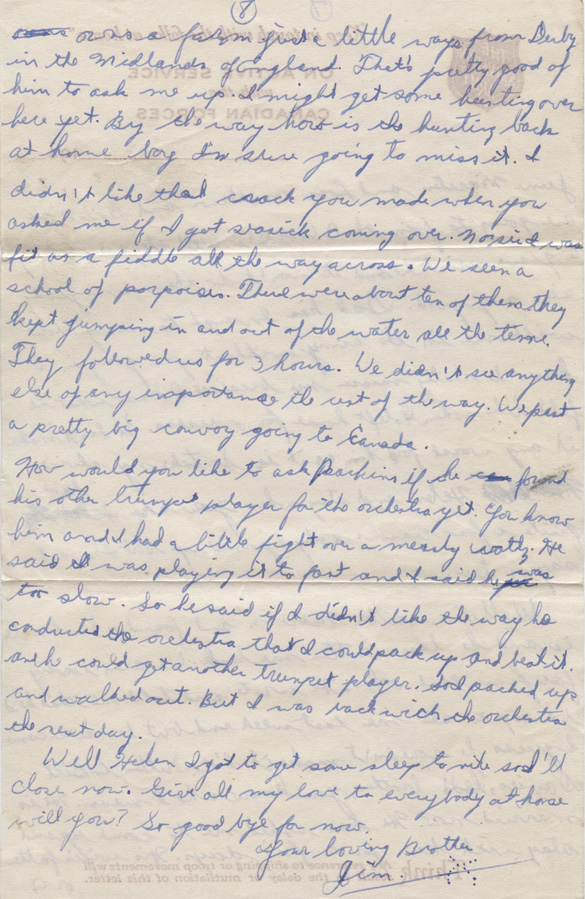 8
owns a farm just a little ways from Derby
in the Midlands of England. That's pretty good of
him to ask me up. I might get some hunting over
here yet. By the way how is the hunting back
at home boy I'm sure going to miss it. I
didn't like that crack you made when you
asked me if I got seasick coming over. No sir I was
fit as a fiddle all the way across. We seen a
school of porpoises. There were about ten of them they
kept jumping in and out of the water all the time.
They followed us for 3 hours. We didn't see anything
else of any importance the rest of the way. We past
a pretty big convoy going to Canada.
How would you like to ask Parkins if he found
his other trumpet player for the orchestra yet. You know
him and I had a little fight over a measly waltz. He
said I was playing it to fast and I said he was
too slow. So he said if I didn't like the way he
conducted the orchestra that I could pack up and beat it.
and he could get another trumpet player. So I packed up
and walked out. But I was back with the orchestra
the next day.
Well Helen I got to get some sleep to nite so I'll
close now. Give all my love to everybody at home
will you? So good bye for now.
Your loving Brother
Jim